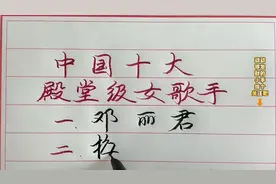 中国十大
殿堂级女歌手
一.邓丽君
二.